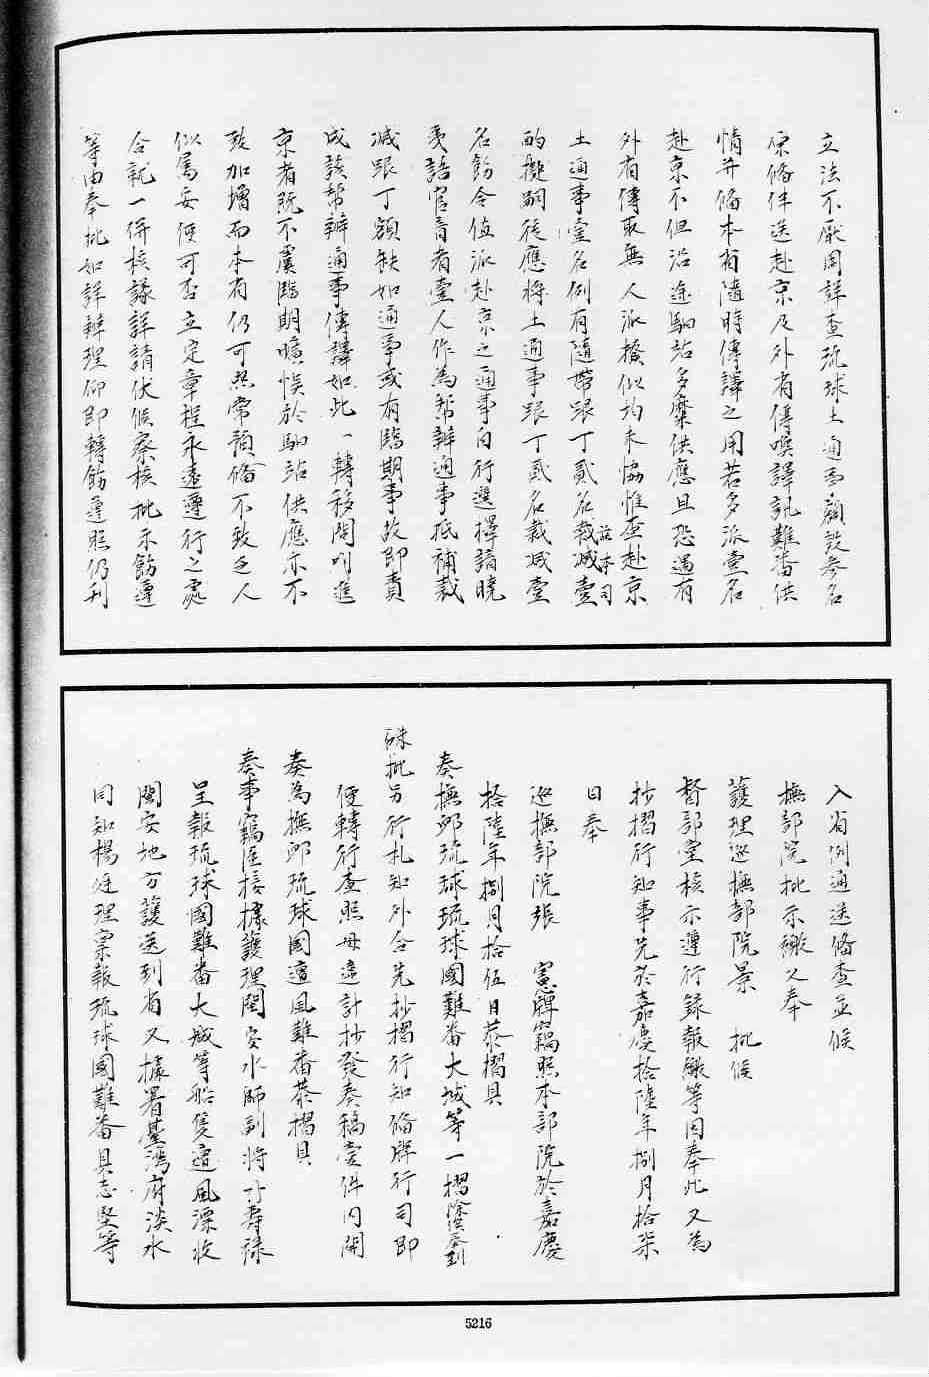 立法不厭周詳查琉球土通事額設叁名
原備伴送赴京及外省傳喚譯訊難番供
情并備本省隨時傳譯之用若多派壹名
赴京不但沿途馹站多糜供應且恐遇有
外省傳取無人派撥似均未協惟查赴京
土通事壹名例有隨帶跟丁貳名裁減壹
茲本司
酌擬嗣後應將土通事跟丁貳名裁減壹
名飭令值派赴京之通事自行選擇諳曉
夷語官音者壹人作為幫辦通事抵補裁
減跟丁額缺如通事或有臨期事故即責
成該幫辦通事傳譯如此一轉移間則進
京者既不虞臨期曠悞於馹站供應亦不
致加增而本省仍可照常預備不致乏人
似屬妥便可否立定章程永遠遵行之處
合就一併核議詳請伏候察核批示飭遵
等由奉批如詳辦理仰即轉飭遵照仍刊
入省例通送備查並候
撫部院批示繳又奉
護理巡撫部院景 批候
督部堂核示遵行錄報繳等因奉此又為
抄摺行知事先於嘉慶拾陸年捌月拾柒
日奉
巡撫部院張 憲牌竊照本部院於嘉慶
拾陸年捌月拾伍日恭摺具
奏撫卹琉球琉球國難番大城等一摺除俟奉到
硃批另行札知外合先抄摺行知備牌行司即
便轉行查照毋違計抄發奏稿壹件內開
奏為撫卹琉球國遭風難番恭摺具
奏事竊臣接據護理閩安水師副將 壽祿
呈報琉球國難番大城等船隻遭風漂收
閩安地方護送到省又據署臺灣府淡水
同知楊廷理稟報琉球國難番具志堅等
5216